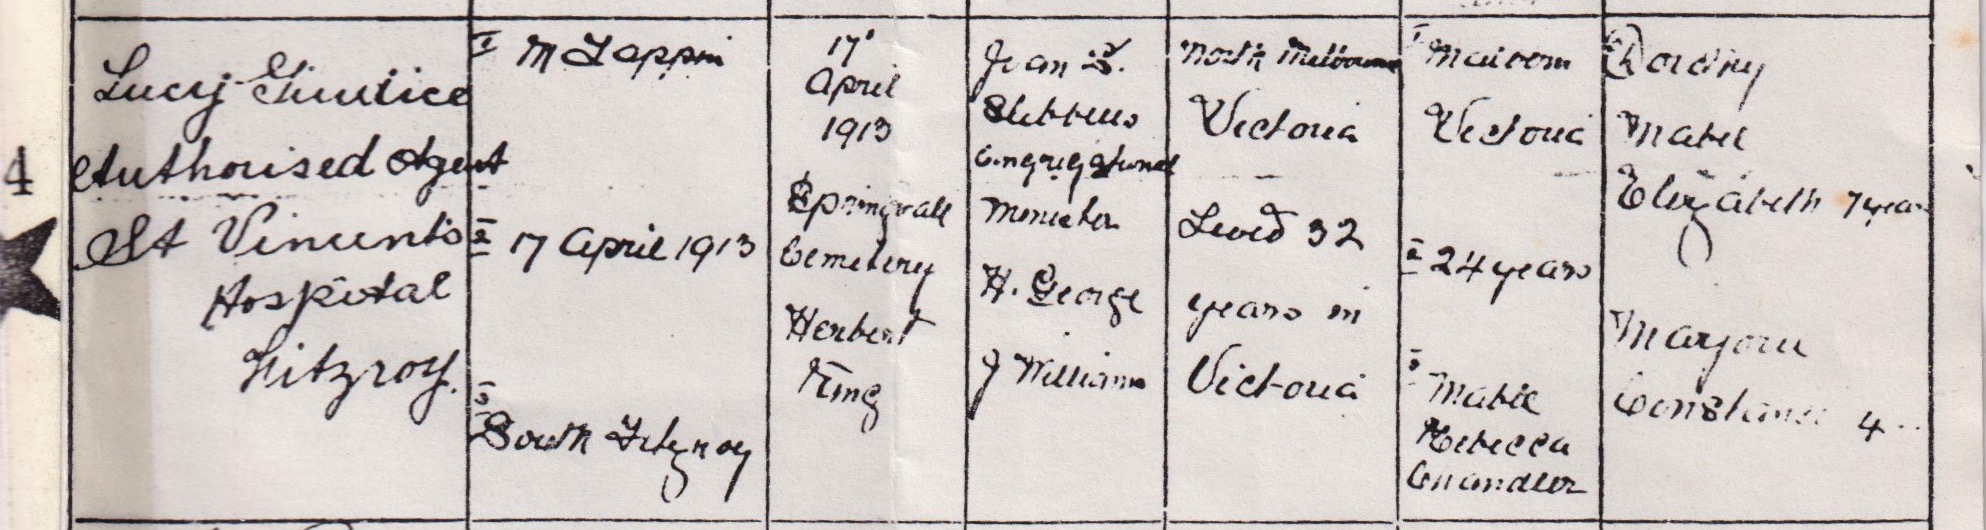 4
Lucy Giudice
Authorised Agent
St Vincent's
Hospital
Fitzroy.
1 M Tappin
2 17 April 1913
3
South Fitzroy
17'
April
1913
Springvale
Cemetery
Herbert
King
Jean S.
Stebbins
Congregational
Minister
H. George
J Williams
North Melbourne
Victoria
Lived 32
years in
Victoria
1 Malvern
Victoria
2 24 years
3
Mabel
Rebecca
Chandler
Dorothy
Mabel
Elizabeth 7 years
Marjorie
Constance 4 "